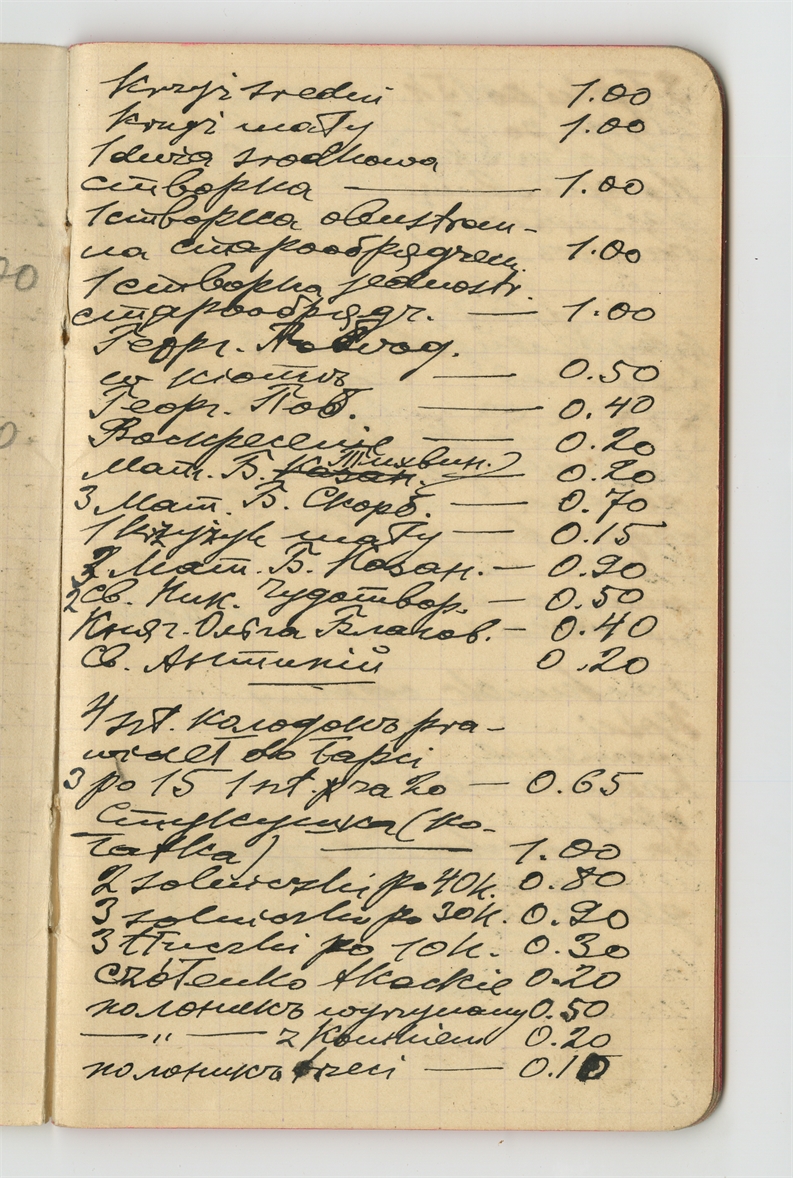 krzyż średni 1.00
krzyż mały 1.00
1 dwia srodkowa
створка — 1.00
1 створка obustron-
na старообрядчесн. 1.00
1 створка jednostr.
старообрядч. — 1.00
Георг. Побѣдод.
w кіотѣ — 0.50
Георг. Поб. — 0.40
Воскресеніе — 0.20
Мат. Б. Казан. Тихвин. — 0.20
3 Мат. Б. Скорб. — 0.70
1 krzyżyk mały — 0.15
3 Мат. Б. Казан. — 0.90
2 Св. Ник. Чудотвор. — 0.50
Княг. Ольга Благов. — 0.40
Св. Антипій 0.20
4 szt. колодокъ pra-
wideł do łapci
3 po 15 1 szt. za 20 — 0.65
Стукушка (ko-
łatka) — 1.00
2 solniczki po 40 k. 0.80
3 solniczki po 30 k. 0.90
3 tłuczki po 10 k. 0.30
czółenko tkackie 0.20
полоникъ wyrzynany 0.50
— „ — z koniem 0.20
полоникъ trzeci — 0.10